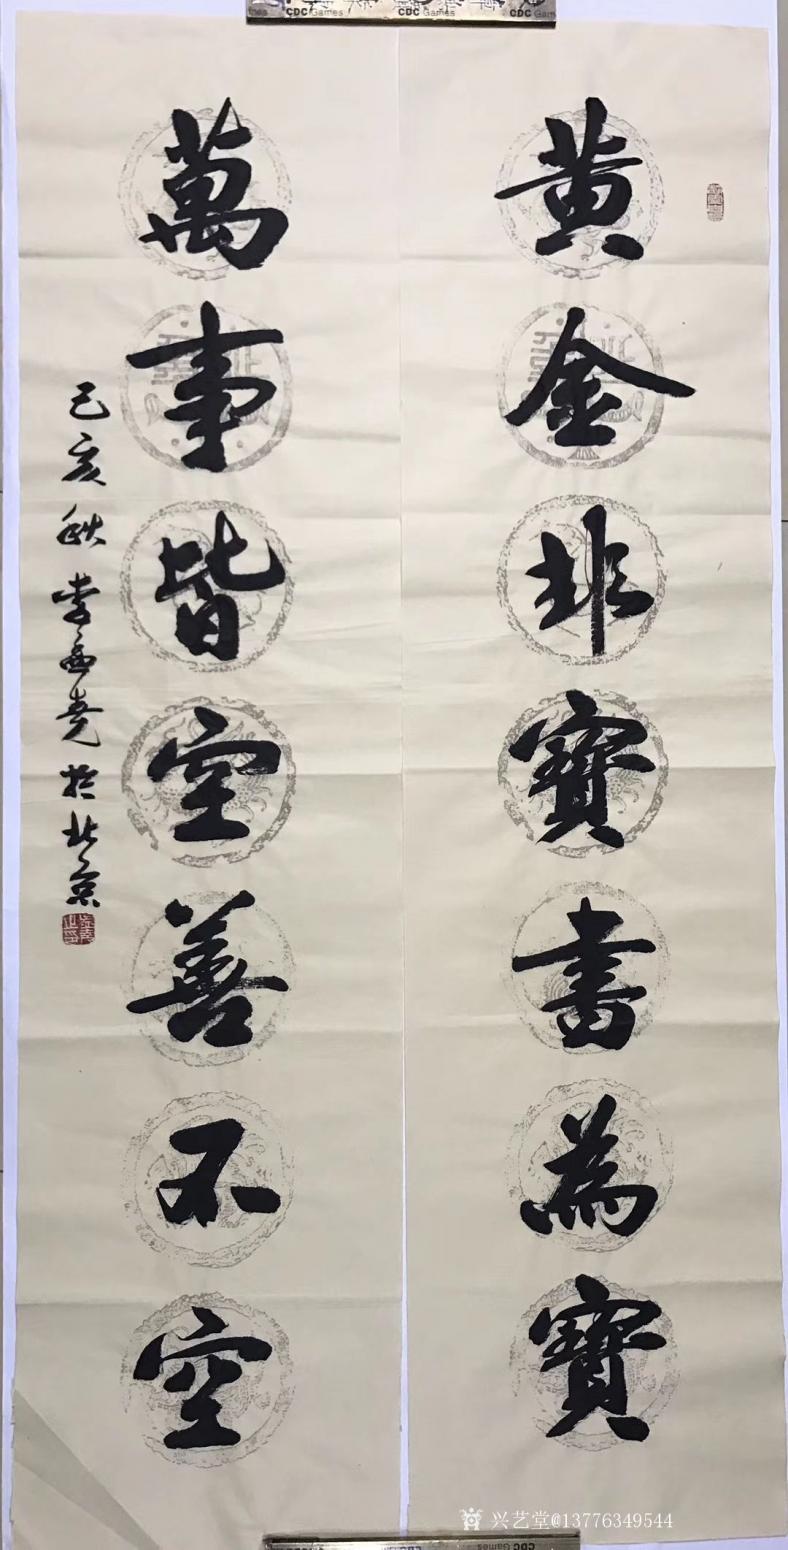 黄金非寶書為寶
萬事皆空善不空
己亥秋李孟堯於北京
CDC Games
CDC Games
CDC Games
兴艺堂@13776349544